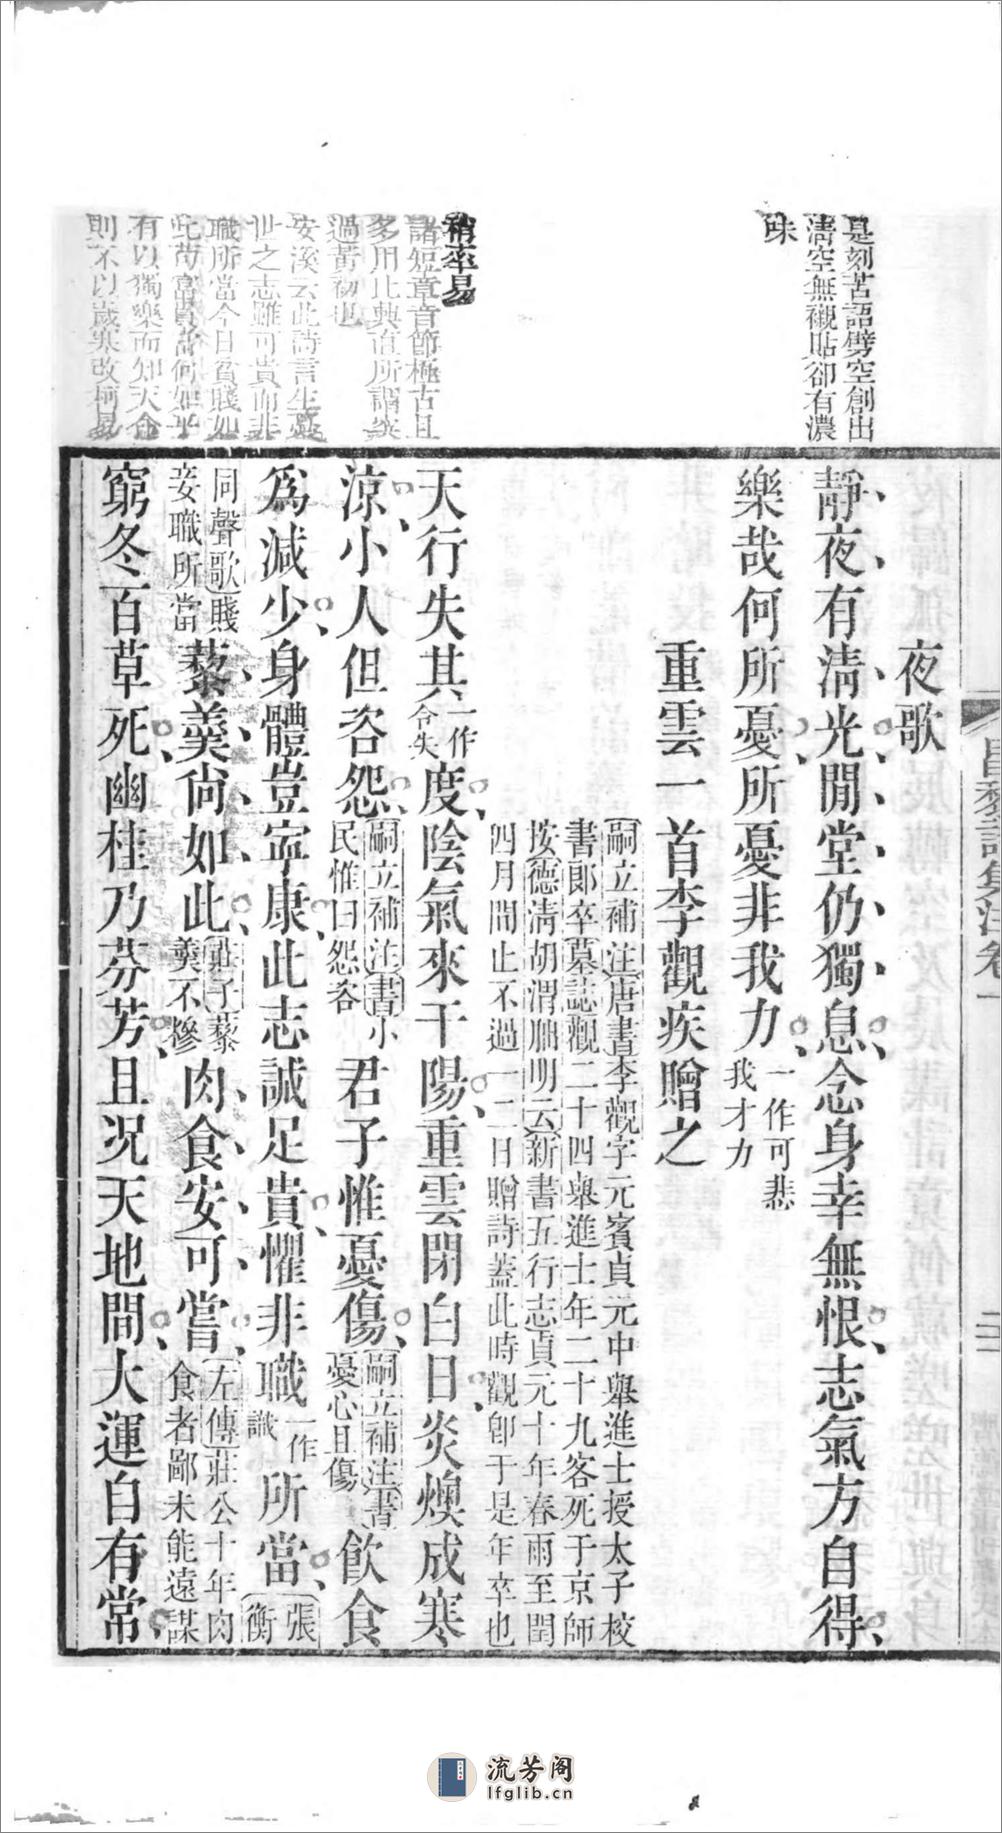 是刻苦語劈空創出
淸空無襯貼卻有濃
味
夜歌
靜夜有淸光閒堂仍獨息念身幸無恨志氣方自得
樂哉何所憂所憂非我力一作可悲我才力
重雲一首李觀疾贈之
嗣立補注唐書李觀字元賓貞元中舉進士授太子校
書郞卒墓誌觀二十四舉進士年二十九客死于京師
按德淸胡渭朏明云新書五行志貞元十年春雨至閏
四月間止不過一二日贈詩蓋此時觀卽于是年卒也
稍率易
諸短章音節極古且
多用比興直所謂
過黃初也
安溪云此詩言生
世之志雖可貴而非
職所當今日貧賤如
此苟富貴當何如乎
有以獨樂而知天命
則不以歲寒改柯易
天行失其一作令失度陰氣來干陽重雲閉白日炎燠成寒
涼小人但咨怨嗣立補注書小民惟曰怨咨君子惟憂傷嗣立補注書憂心且傷飮食
爲減少身體豈寧康此志誠足貴懼非職一作識所當張衡
同聲歌賤妾職所當藜羹尙如此莊子藜羹不糝肉食安可嘗左傳莊公十年肉食者鄙未能遠謀
窮冬百草死幽桂乃芬芳且况天地間大運自有常
昌黎詩集注卷一
流芳阁
lfglib.cn